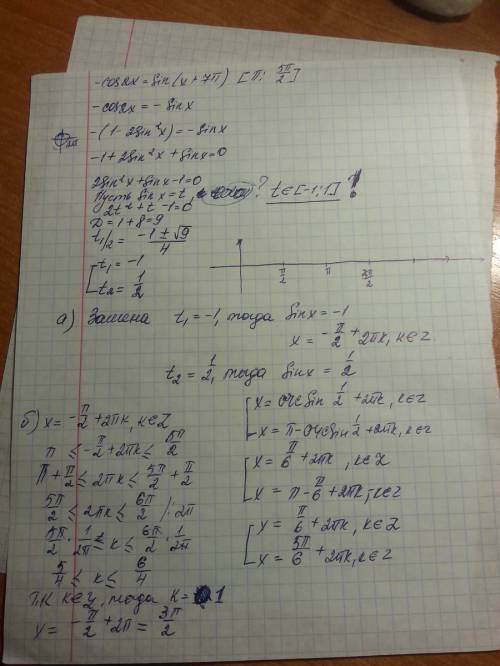 -cos2x = sin(x + 7π) [π; 5π/2]
-cos2x = - sinx
-(1 - 2sin²x) = - sinx
-1 + 2sin²x + sinx = 0
2sin²x + sinx - 1 = 0
Пусть sinx = t, ? t ∈ [-1; 1] !
2t² + t - 1 = 0
D = 1 + 8 = 9
t₁/₂ = (-1 ± √9)/4
[ t₁ = -1
t₂ = 1/2
π/2 π 3π/2
а) Замена t₁ = -1, тогда sinx = -1
x = -π/2 + 2πk, k∈z
t₂ = 1/2, тогда sinx = 1/2
[ x = arcsin 1/2 + 2πk, k∈z
x = π - arcsin 1/2 + 2πk, k∈z
[ x = π/6 + 2πk, k∈Z
x = π - π/6 + 2πk, k∈z
[ x = π/6 + 2πk, k∈Z
x = 5π/6 + 2πk, k∈z
б) x = -π/2 + 2πk, k∈Z
π ≤ -π/2 + 2πk ≤ 5π/2
π + π/2 ≤ 2πk ≤ 5π/2 + π/2
5π/2 ≤ 2πk ≤ 6π/2 /: 2π
5π/2 · 1/2π ≤ k ≤ 6π/2 · 1/2π
5/4 ≤ k ≤ 6/4
Т.К k∈Z, тогда k = 1
x = -π/2 + 2π = 3π/2